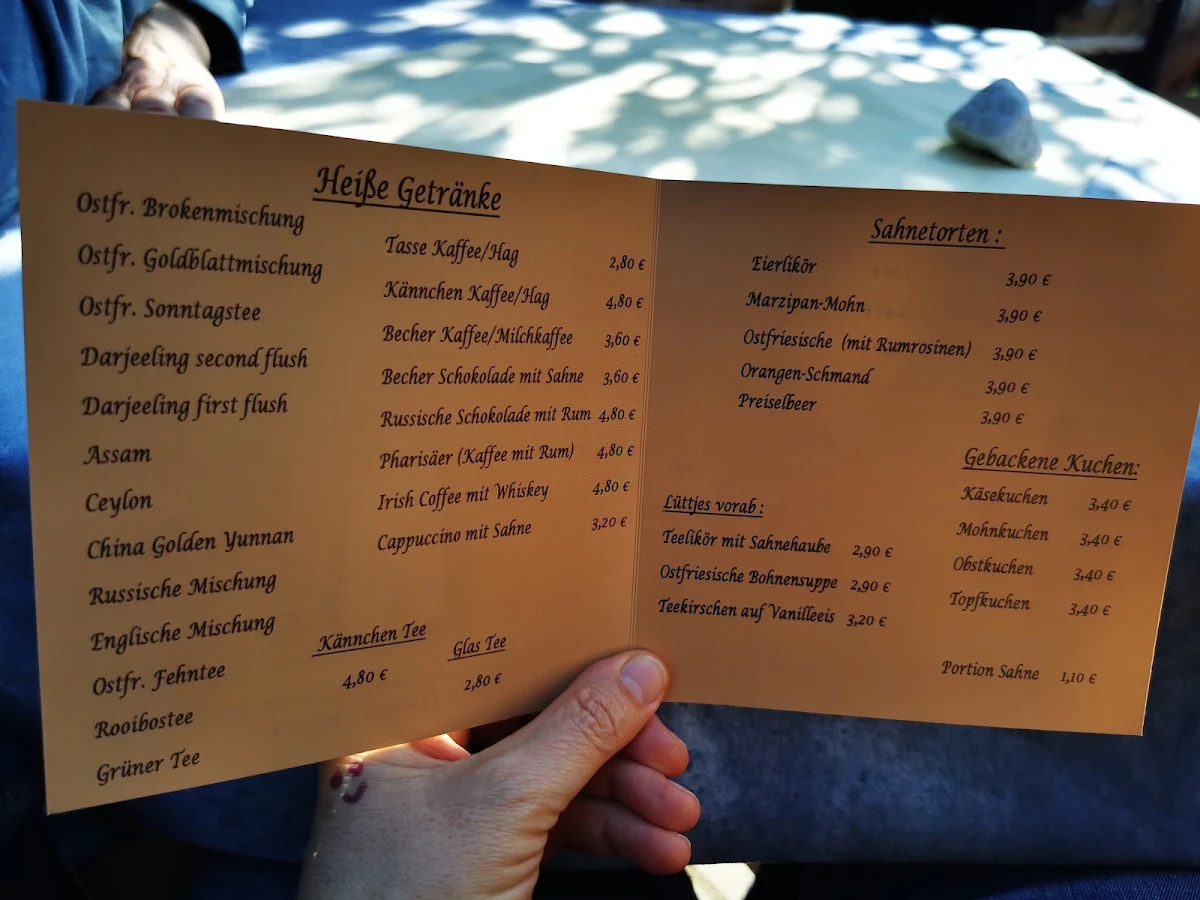 Heiße Getränke
Ostfr. Brokenmischung
Ostfr. Goldblattmischung
Ostfr. Sonntagstee
Darjeeling second flush
Darjeeling first flush
Assam
Ceylon
China Golden Yunnan
Russische Mischung
Englische Mischung
Ostfr. Fehntee
Rooibostee
Grüner Tee
Tasse Kaffee/Hag 2,80 €
Kännchen Kaffee/Hag 4,80 €
Becher Kaffee/Milchkaffee 3,60 €
Becher Schokolade mit Sahne 3,60 €
Russische Schokolade mit Rum 4,80 €
Pharisäer (Kaffee mit Rum) 4,80 €
Irish Coffee mit Whiskey 4,80 €
Cappuccino mit Sahne 3,20 €
Kännchen Tee Glas Tee
4,80 € 2,80 €
Sahnetorten :
Eierlikör 3,90 €
Marzipan-Mohn 3,90 €
Ostfriesische (mit Rumrosinen) 3,90 €
Orangen-Schmand 3,90 €
Preiselbeer 3,90 €
Lüttjes vorab :
Teelikör mit Sahnehaube 2,90 €
Ostfriesische Bohnensuppe 2,90 €
Teekirschen auf Vanilleeis 3,20 €
Gebackene Kuchen:
Käsekuchen 3,40 €
Mohnkuchen 3,40 €
Obstkuchen 3,40 €
Topfkuchen 3,40 €
Portion Sahne 1,10 €